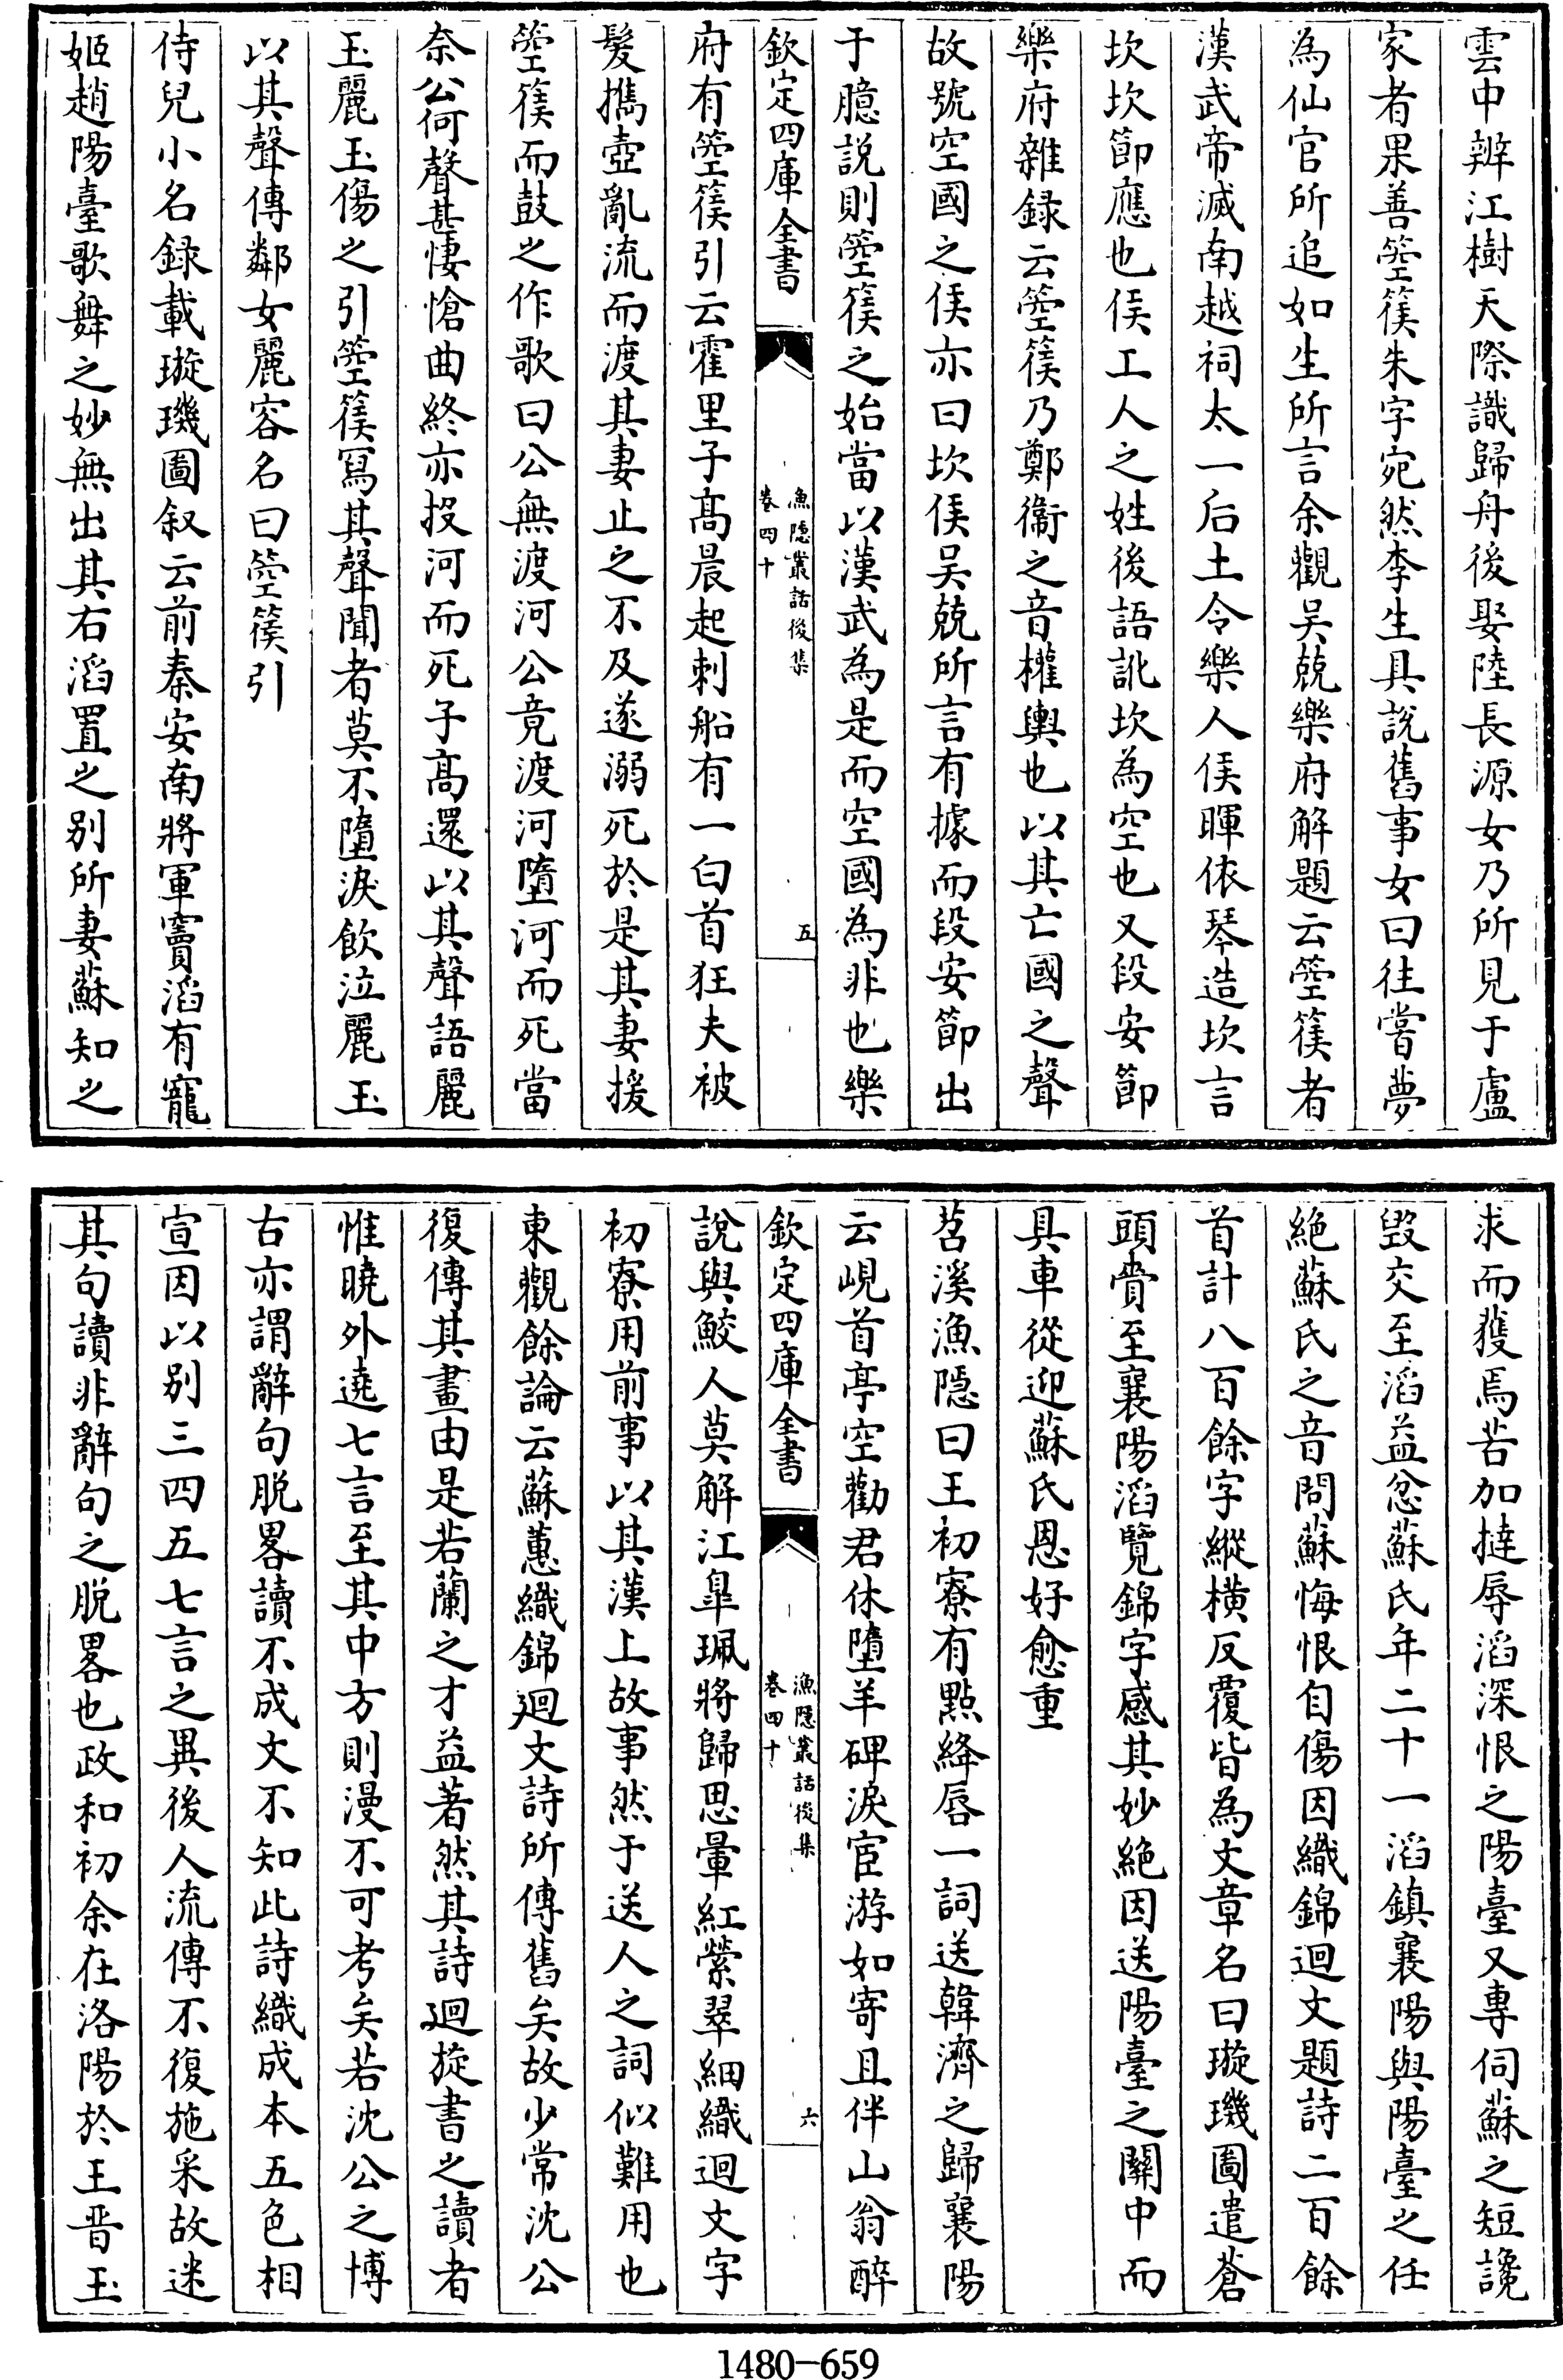 雲中辨江樹天際識歸舟後娶陸長源女乃所見于盧
家者果善箜篌朱字宛然李生具說舊事女曰往嘗夢
為仙官所追如生所言余觀吴兢樂府解題云箜篌者
漢武帝滅南越祠太一后土令樂人侯暉依琴造坎言
坎坎節應也侯工人之姓後語訛坎為空也又段安節
樂府雜録云箜篌乃鄭衞之音權輿也以其亡國之聲
故號空國之侯亦曰坎侯吴兢所言有據而段安節出
于臆説則箜篌之始當以漢武為是而空國為非也樂
欽定四庫全書
漁隱叢話後集
卷四十
五
府有箜篌引云霍里子髙晨起刺船有一白首狂夫被
髮攜壺亂流而渡其妻止之不及遂溺死於是其妻援
箜篌而鼓之作歌曰公無渡河公竟渡河墮河而死當
奈公何聲甚悽愴曲終亦投河而死子髙還以其聲語麗
玉麗玉傷之引箜篌寫其聲聞者莫不墮淚飲泣麗玉
以其聲傳鄰女麗容名曰箜篌引
侍兒小名録載璇璣圖叙云前秦安南將軍竇滔有寵
姬趙陽臺歌舞之妙無出其右滔置之别所妻蘇知之
求而獲焉苦加撻辱滔深恨之陽臺又專伺蘇之短讒
毁交至滔益忿蘇氏年二十一滔鎮襄陽與陽臺之任
絶蘇氏之音問蘇悔恨自傷因織錦迴文題詩二百餘
首計八百餘字縱横反覆皆為文章名曰璇璣圖遣蒼
頭賫至襄陽滔覽錦字感其妙絶因送陽臺之關中而
具車從迎蘇氏恩好愈重
苕溪漁隱曰王初寮有點絳唇一詞送韓濟之歸襄陽
云峴首亭空勸君休墮羊碑淚宦游如寄且伴山翁醉
欽定四庫全書
漁隱叢話後集
卷四十
六
說與鮫人莫解江臯珮將歸思暈紅縈翠細織迴文字
初寮用前事以其漢上故事然于送人之詞似難用也
東觀餘論云蘇蕙織錦迴文詩所傳舊矣故少常沈公
復傳其畫由是若蘭之才益著然其詩迴旋書之讀者
惟曉外遶七言至其中方則漫不可考矣若沈公之博
古亦謂辭句脱畧讀不成文不知此詩織成本五色相
宣因以别三四五七言之異後人流傳不復施采故迷
其句讀非辭句之脱畧也政和初余在洛陽於王晋玉
1480-659